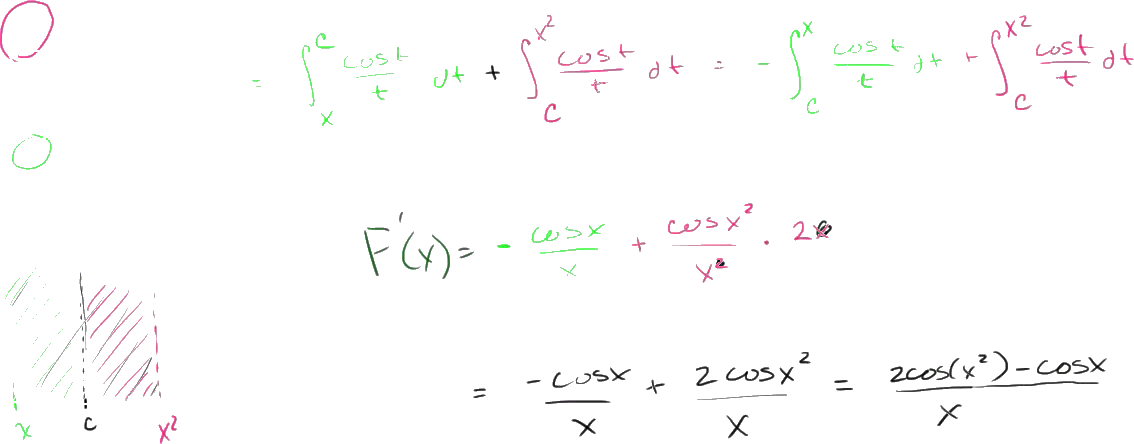 = ∫_x^c cos t / t dt + ∫_c^{x²} cos t / t dt = - ∫_c^x cos t / t dt + ∫_c^{x²} cos t / t dt
F'(x) = - cos x / x + cos x² / x² · 2x
= -cos x / x + 2 cos x² / x = 2cos(x²) - cos x / x
x c x²